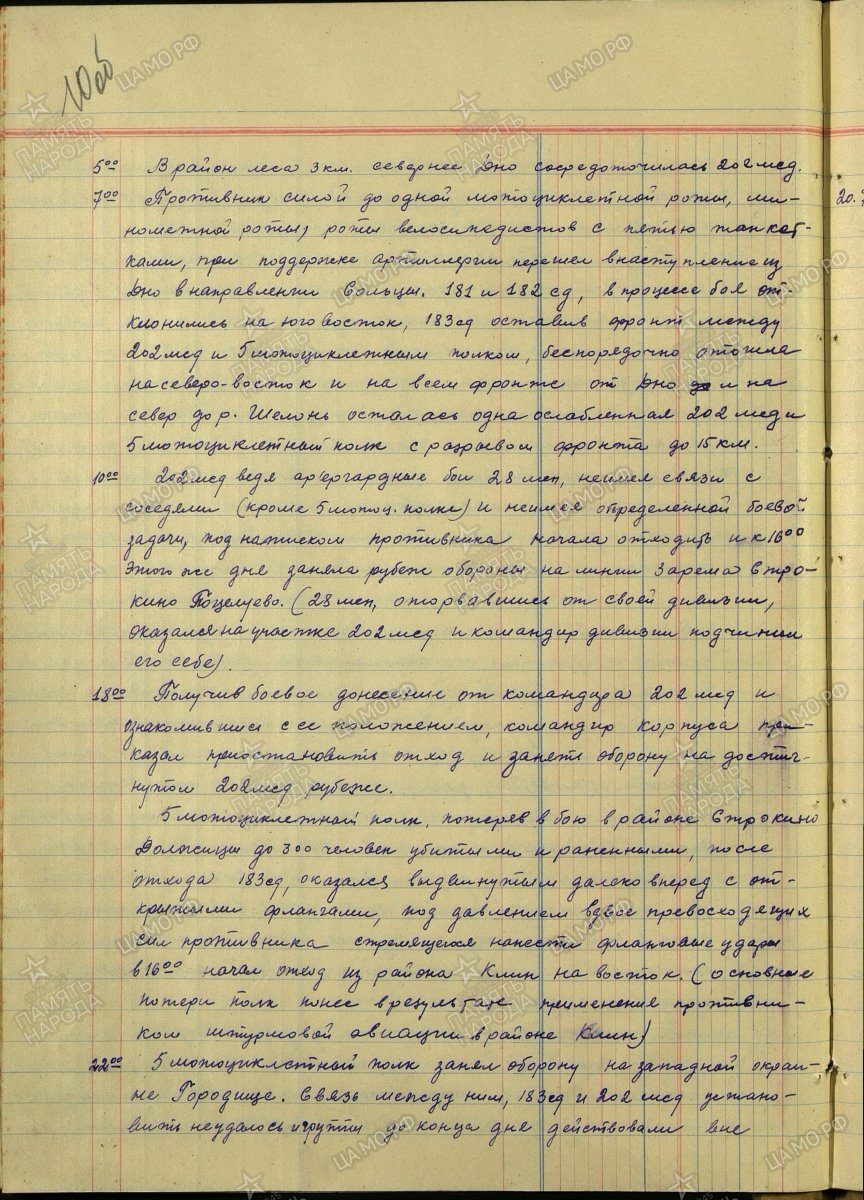 10об
5⁰⁰ В район леса 3 км. севернее Дно сосредоточилась 202 мсд.
7⁰⁰ Противник силой до одной мотоциклетной роты, ми-
20.
нометной роты, роты велосипедистов с пятью танкет-
ками, при поддержке артиллерии перешел в наступление из
Дно в направлении Сольцы. 181 и 182 сд, в процессе боя от-
клонились на юго восток, 183 сд оставив фронт между
202 мсд и 5 мотоциклетным полком, беспорядочно отошла
на северо-восток и на всем фронте от Дно и на
север до р. Шелонь осталась одна ослабленная 202 мсд и
5 мотоциклетный полк с разрывом фронта до 15 км.
10⁰⁰ 202 мсд ведя арьергардные бои 28 мсп, неимея связи с
соседями (кроме 5 мотоц. полка) и неимея определенной боевой
задачи, под натиском противника начала отходить и к 16⁰⁰
этого же дня заняла рубеж обороны на линии Зарема Стро-
кино Поцелуево. (28 мсп, оторвавшись от своей дивизии,
оказался на участке 202 мсд и командир дивизии подчинил
его себе).
18⁰⁰ Получив боевое донесение от командира 202 мсд и
ознакомившись с ее положением, командир корпуса при-
казал приостановить отход и занять оборону на достиг-
нутом 202 мсд рубеже.
5 мотоциклетный полк, потеряв в бою в районе Строкино
Должицы до 300 человек убитыми и раненными, после
отхода 183 сд, оказался выдвинутым далеко вперед с от-
крытыми флангами, под давлением вдвое превосходящих
сил противника стремящегося нанести фланговые удары
в 16⁰⁰ начал отход из района Клин на восток. (основные
потери полк понес в результате применения противни-
ком штурмовой авиации в районе Клин)
22⁰⁰ 5 мотоциклетный полк занял оборону на западной окраи-
не Городище. Связь между ним, 183 сд и 202 мсд устано-
вить неудалось и группы до конца дня действовали вне